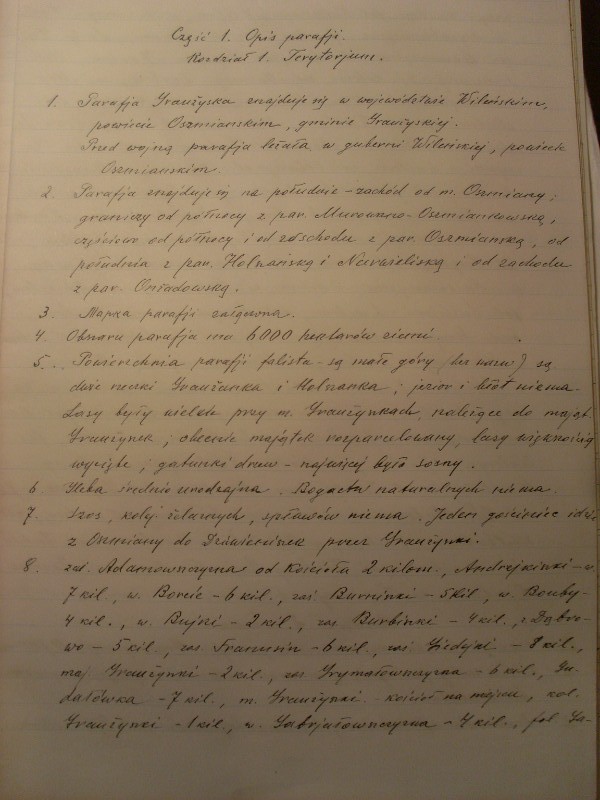 Część 1. Opis parafji.
Rozdział 1. Terytorjum.
1. Parafja Graużyska znajduje się w województwie Wileńskim,
powiecie Oszmianskim, gminie Graużyskiej.
Przed wojną parafja leżała w guberni Wileńskiej, powiecie
Oszmianskim.
2. Parafja znajduje się na południe-zachód od m. Oszmiany;
graniczy od północy z par. Murowano-Oszmiankowską,
częściowo od północy i od zaschodu z par. Oszmianską, od
południa z par. Holszańską i i od zachodu
z par.
3. Mapka parafji załączona.
4. Obszaru parafja ma 6000 hektarów ziemi.
5. Powierzchnia parafji falista - są małe góry (bez nazw) są
dwie rzeki Graużanka i Holszanka; jezior i błót niema.
Lasy były wielkie przy m. Graużynkach, należące do mająt.
Graużynek; obecnie majątek rozparcelowany, lasy większością
wycięte; gatunki drzew - najwięcej było sosny.
6 Gleba średnio urodzajna. Bogactw naturalnych niema.
7. Szos, kolej żelaznych, spławów niema. Jeden gościniec idzie
z Oszmiany do Dziewieniszek przez Graużynki.
8. zaś. Adamowszczyzna od Kościoła 2 kilom., -
7 kil., w. Borcie - 6 kil., zaś - 5 kil, w.
4 kil., w. Bujki - 2 kil., zaś. - 4 kil., z Dąbro-
wo - 5 kil., zaś. - 6 kil., zaś Giedejki - 8 kil.,
maj. Graużynki - 2 kil., zaś - 6 kil., Gu-
dalówka - 7 kil., m. Graużynki - kościół na miejscu, kol.
Graużynki - 1 kil., w. Gabrjałowszczyzna - 4 kil., fol Ga-